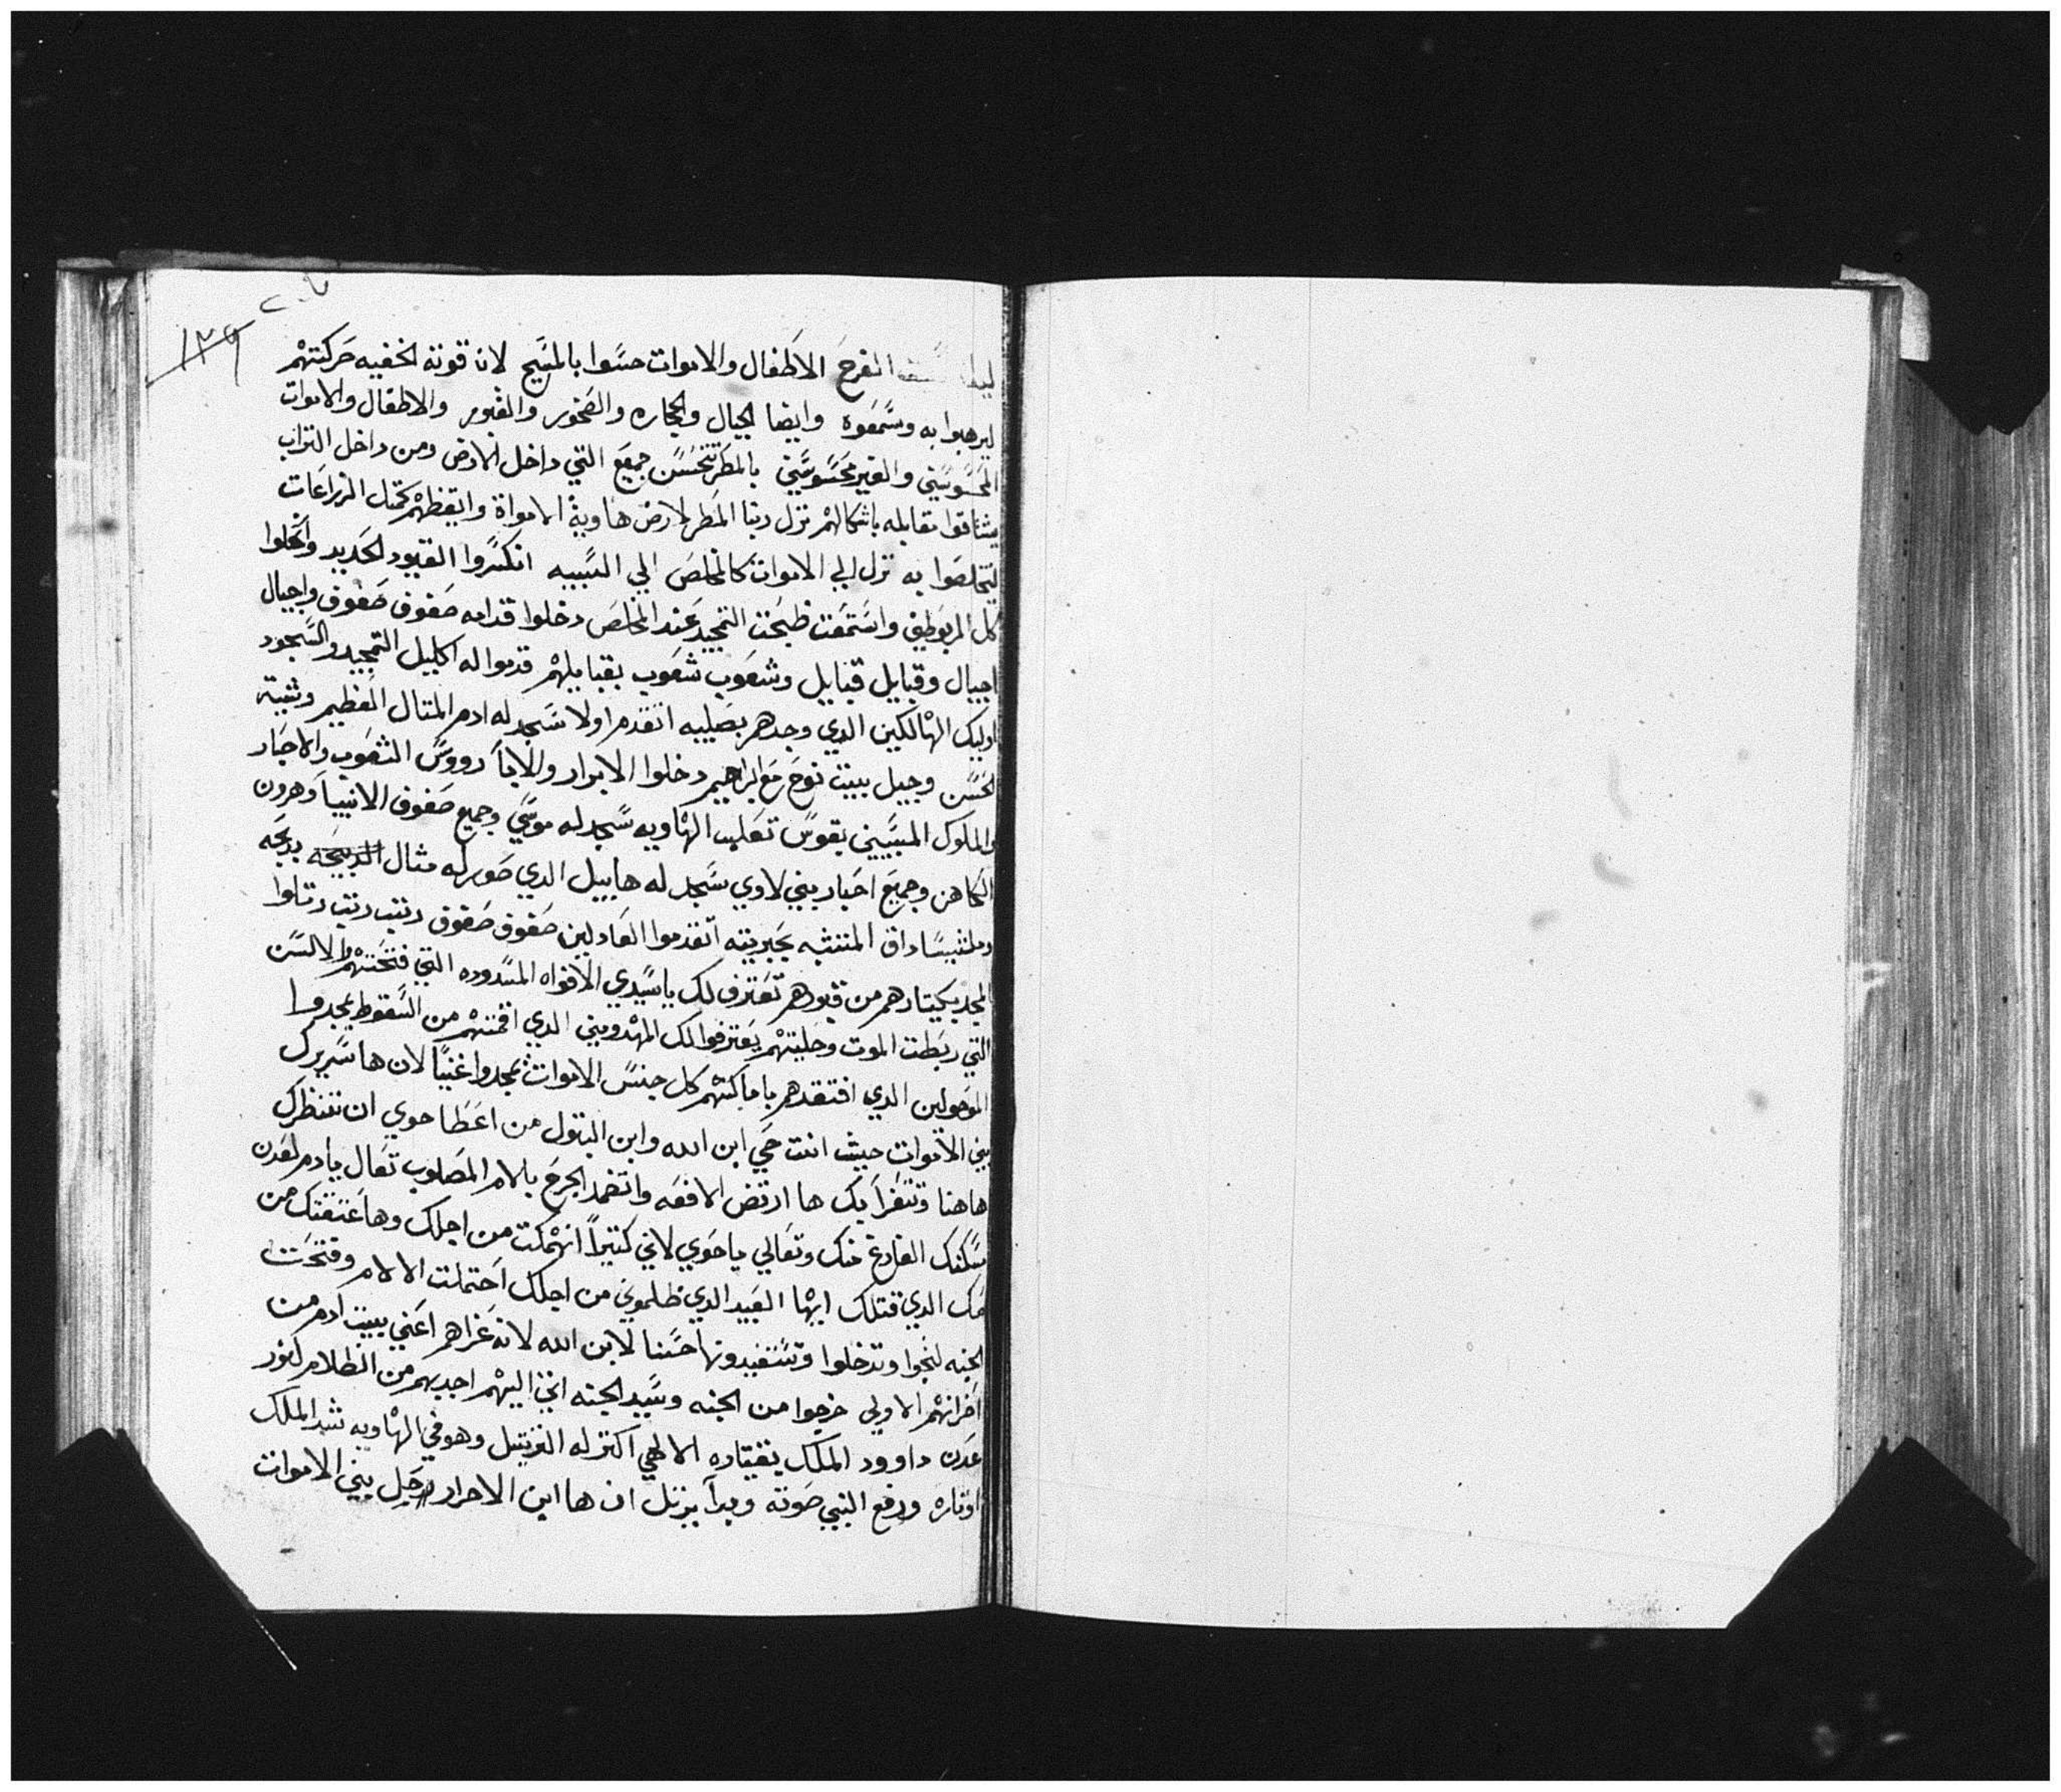 ١٣٩
المفرح الاطفال والاموات حسوا بالمسيح لانه قوته الخفيه حركتهم
ليرهبوا به وسمعوه وايضا الجبال والحجاره والصخور والقبور والاطفال والاموات
المحسوسين والغير محسوسين بالمطر تتحسس جميع التي داخل الارض ومن داخل التراب
يشتاقوا مقابله باشكالهم نزل ربنا المطر لارض هاوية الامواة وايقظهم كمتل الزراعات
ليتخلصوا به نزل الي الاموات كالمخلص الي السبيه انكسروا القيود الحديد وانحلوا
كل المربوطين واستمعت ظبحت التمجيد عند المخلص دخلوا قدامه صفوف صفوف واجيال
اجيال وقبايل قبايل وشعوب شعوب بقبايلهم قدموا له اكليل التمجيد والسجود
اوليك الهالكين الدي وجدهم بصليبه اتقدم اولا سجد له ادم المتال العظيم وشيته
الحسن وجيل بييت نوح مع ابراهيم دخلوا الابرار والابآ رووس الشعوب والاحبار
والملوك المسبيين بقوس تعلب الهاويه سجد له موسي وجميع صفوف الانبيا وهرون
الكاهن وجميع احبار بني لاوي سجد له هابيل الدي صور له مثال الدبيحه بدبحه
وملشيساداق المتشبه بحبريته اتقدموا العادلين صفوف صفوف رتيب رتيب رتلوا
المجد بكيتارهم من قبورهم تعترف لك ياسيدي الافواه المسدوده التي فتحتهم الالسن
التي ربطت الموت وحليتهم يعترفوا لك المهدومين الدي اقمتهم من السقوط يمجدوا
الموحولين الدي افتقدهم باماكنهم كل جنس الاموات يمجدوا غنيًا لان ها سريرك
بين الاموات حيث انت حي ابن الله وابن البتول من اعطا حوي ان تنتظرك
هاهنا وتتفرأ بك ها ارتض الافعه واتضمد الجرح بالام المصلوب تعال يادم لعدن
مسكنك الفارغ منك وتعالي ياحوي لاني كتيراً انهمكت من اجلك وها عتقتك من
الدي قتلك ايها العبيد الدي ظلموني من اجلك احتملت الالام وفتحت
الجنه لتجوا وتدخلوا وتستفيدونها حسنا لابن الله لانه عزاهم اعني بييت ادم من
احزانهم الاولي خرجوا من الجنه وسيد الجنه اتي اليهم اجديهم من الظلام لنور
عدن داوود الملك بقيتاره الالهي اكتر له التريتيل وهو في الهاويه شد الملك
اوتاره ورفع النبي صوته وبدآ يرتل ان ها ابن الاحرار رجل بين الاموات